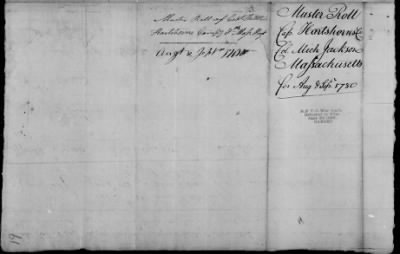 Muster Roll of Capt
Hartshorns Compy 8th Mass Regt
Augt & Sept 1780
Muster Roll
Capt Hartshorns Co
Col. Mich Jackson
Massachusetts
for Aug & Sept 1780
19